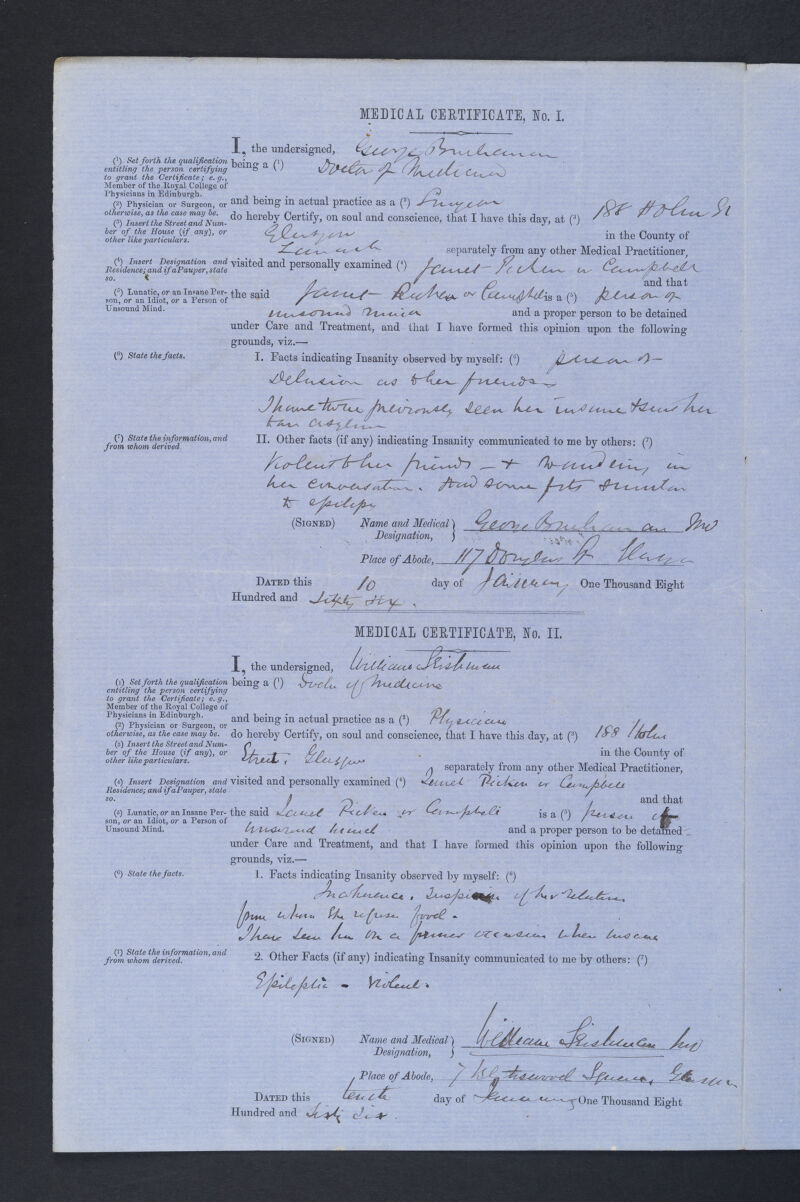 MEDICAL CERTIFICATE, No. I.
I, the undersigned, George Buchanan
(1) Set forth the qualification entitling the person certifying to grant the Certificate; e. g., Member of the Royal College of Physicians in Edinburgh.
being a (1) Doctor of Medicine
(2) Physician or Surgeon, or otherwise, as the case may be.
and being in actual practice as a (2) Surgeon
(3) Insert the Street and Number of the House (if any), or other like particulars.
do hereby Certify, on soul and conscience, that I have this day, at (3) 188 Holm St
Glasgow in the County of
Lanark separately from any other Medical Practitioner,
(4) Insert Designation and Residence; and if a Pauper, state so.
visited and personally examined (4) Janet Picken or Campbell
and that
(5) Lunatic, or an Insane Person, or an Idiot, or a Person of Unsound Mind.
the said Janet Picken or Campbell is a (5) person of
unsound mind and a proper person to be detained
under Care and Treatment, and that I have formed this opinion upon the following
grounds, viz.—
(6) State the facts.
I. Facts indicating Insanity observed by myself: (6) person of
Delusion as to her friends
I have twice previously seen her insane & sent her
to an asylum
(7) State the information, and from whom derived.
II. Other facts (if any) indicating Insanity communicated to me by others: (7)
Violent to her friends — & wandering in
her conversation. Had some fits similar
to epilepsy
(SIGNED) Name and Medical Designation, George Buchanan MD
Place of Abode, 117 Douglas St Glasgow
DATED this 10 day of January One Thousand Eight
Hundred and Sixty six.
MEDICAL CERTIFICATE, No. II.
I, the undersigned, William Leishman
(1) Set forth the qualification entitling the person certifying to grant the Certificate; e. g., Member of the Royal College of Physicians in Edinburgh.
being a (1) Doctor of Medicine
(2) Physician or Surgeon, or otherwise, as the case may be.
and being in actual practice as a (2) Physician
(3) Insert the Street and Number of the House (if any), or other like particulars.
do hereby Certify, on soul and conscience, that I have this day, at (3) 188 Holm
Street, Glasgow in the County of
separately from any other Medical Practitioner,
(4) Insert Designation and Residence; and if a Pauper, state so.
visited and personally examined (4) Janet Picken or Campbell
and that
(5) Lunatic, or an Insane Person, or an Idiot, or a Person of Unsound Mind.
the said Janet Picken or Campbell is a (5) person of
unsound mind and a proper person to be detained
under Care and Treatment, and that I have formed this opinion upon the following
grounds, viz.—
(6) State the facts.
1. Facts indicating Insanity observed by myself: (6)
Incoherence, Suspicion of her relatives
from whom she refuses food.
I have seen her on a former occasion when insane
(7) State the information, and from whom derived.
2. Other Facts (if any) indicating Insanity communicated to me by others: (7)
Epileptic - Violent.
(SIGNED) Name and Medical Designation, William Leishman MD
Place of Abode, 7 Blythswood Square, Glasgow
DATED this tenth day of January One Thousand Eight
Hundred and Sixty Six.